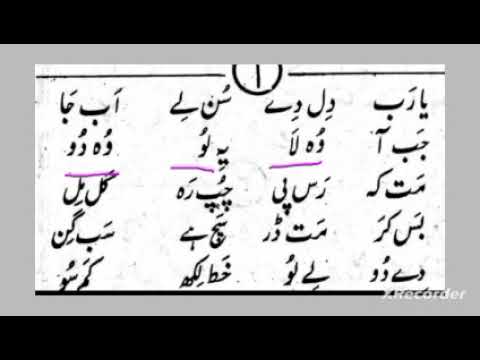 ۱
یا رَب دِل دے سُن لے اَب جَا
جَب آ وُہ لَا یہ لُو وُہ دُو
مَت کہ رَس پی چُپ رَہ گَل مِل
بَس کَر مَت ڈر سَچ ہے سَب گِن
دِے دُو لے لُو خَط لِکھ کَم سُو
XRecorder